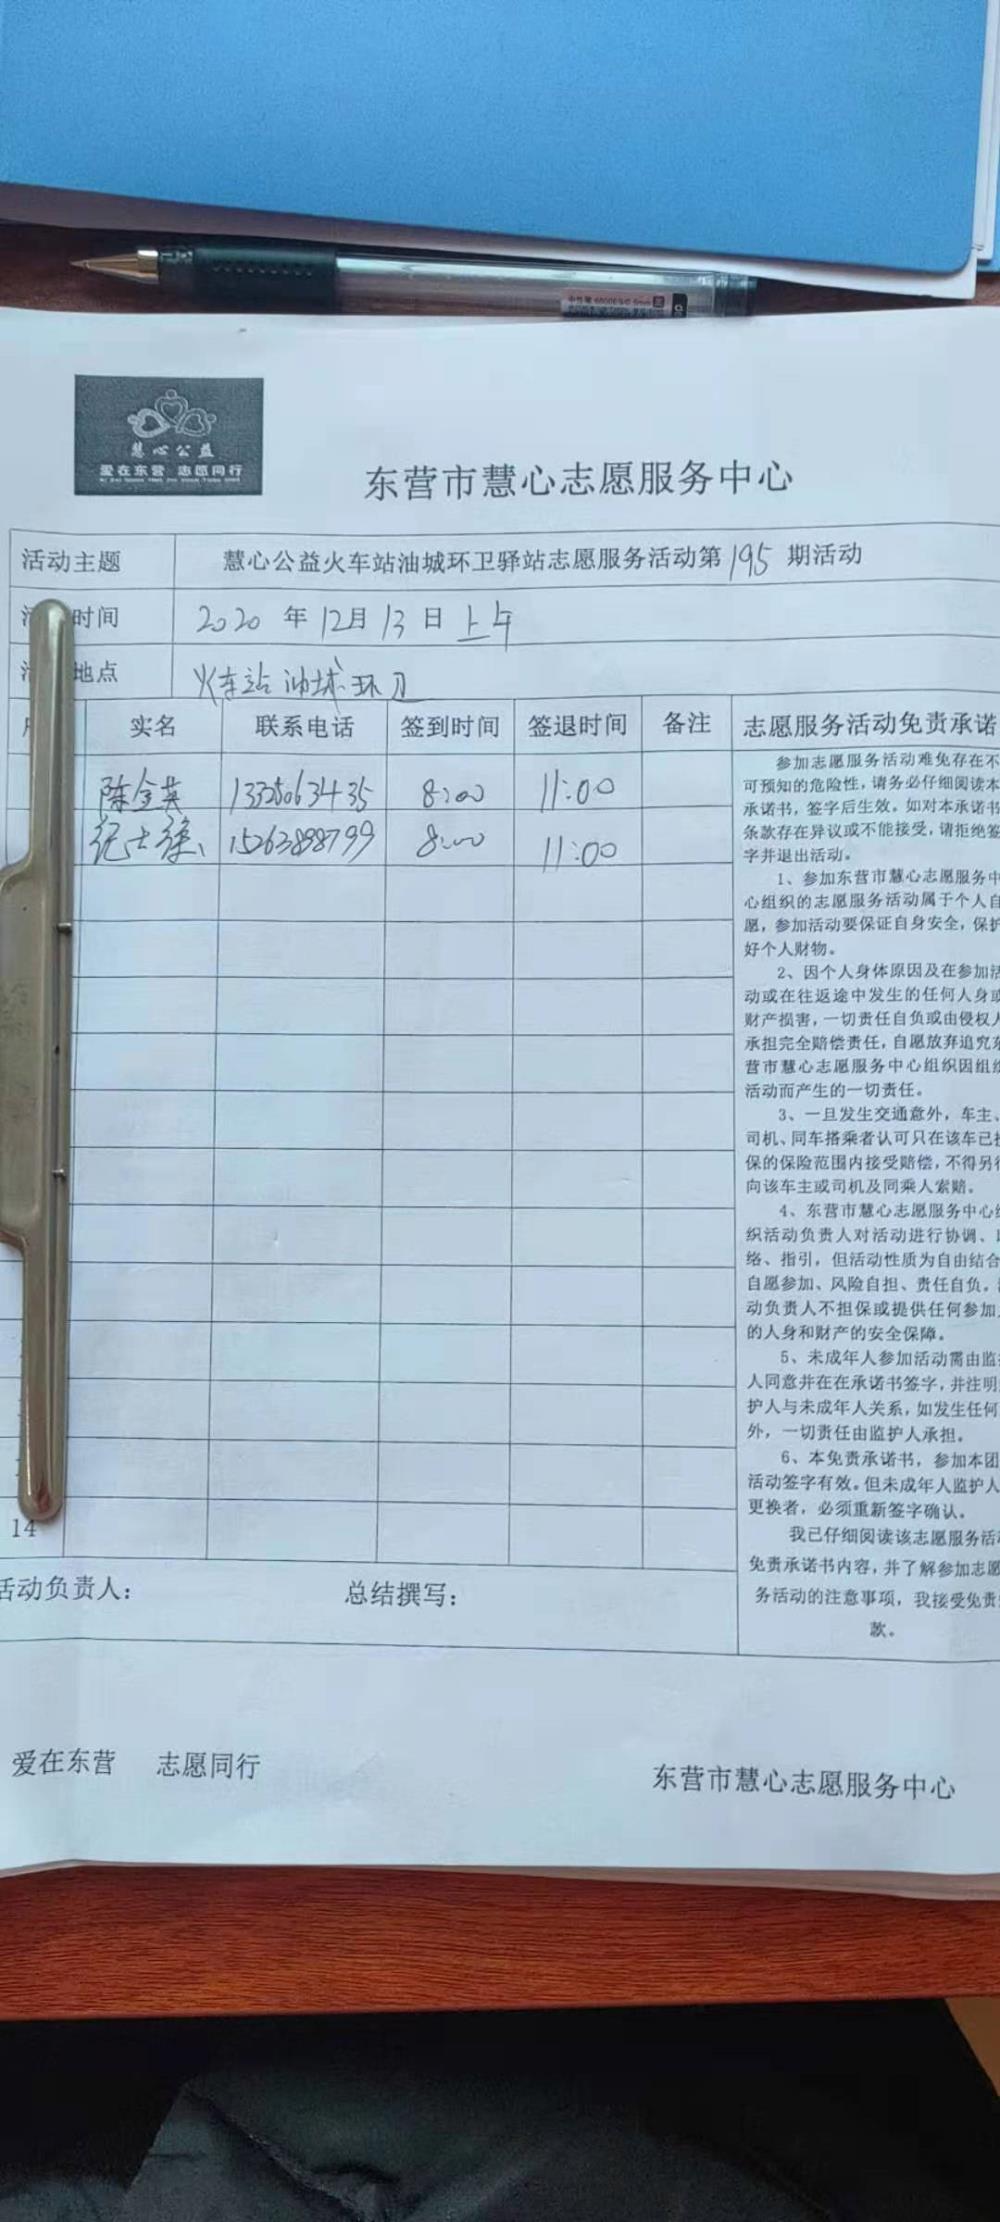 慧心公益
爱在东营 志愿同行
东营市慧心志愿服务中心
活动主题 慧心公益火车站油城环卫驿站志愿服务活动第195期活动
时间 2020年12月13日上午
地点 火车站油城环卫
实名 联系电话 签到时间 签退时间 备注
陈金英 8:00 11:00
15263898799 8:00 11:00
14
活动负责人： 总结撰写：
志愿服务活动免责承诺
参加志愿服务活动难免存在不
可预知的危险性，请务必仔细阅读本
承诺书，签字后生效。如对本承诺书
条款存在异议或不能接受，请拒绝签
字并退出活动。
1、参加东营市慧心志愿服务中
心组织的志愿服务活动属于个人自
愿，参加活动要保证自身安全，保护
好个人财物。
2、因个人身体原因及在参加活
动或在往返途中发生的任何人身或
财产损害，一切责任自负或由侵权人
承担完全赔偿责任，自愿放弃追究东
营市慧心志愿服务中心组织因组织
活动而产生的一切责任。
3、一旦发生交通意外，车主、
司机、同车搭乘者认可只在该车已投
保的保险范围内接受赔偿，不得另行
向该车主或司机及同乘人索赔。
4、东营市慧心志愿服务中心组
织活动负责人对活动进行协调、联
络、指引，但活动性质为自由结合
自愿参加、风险自担、责任自负。活
动负责人不担保或提供任何参加人
的人身和财产的安全保障。
5、未成年人参加活动需由监护
人同意并在在承诺书签字，并注明监
护人与未成年人关系，如发生任何
外，一切责任由监护人承担。
6、本免责承诺书，参加本团
活动签字有效。但未成年人监护人
更换者，必须重新签字确认。
我已仔细阅读该志愿服务活动
免责承诺书内容，并了解参加志愿
务活动的注意事项，我接受免责
款。
爱在东营 志愿同行
东营市慧心志愿服务中心